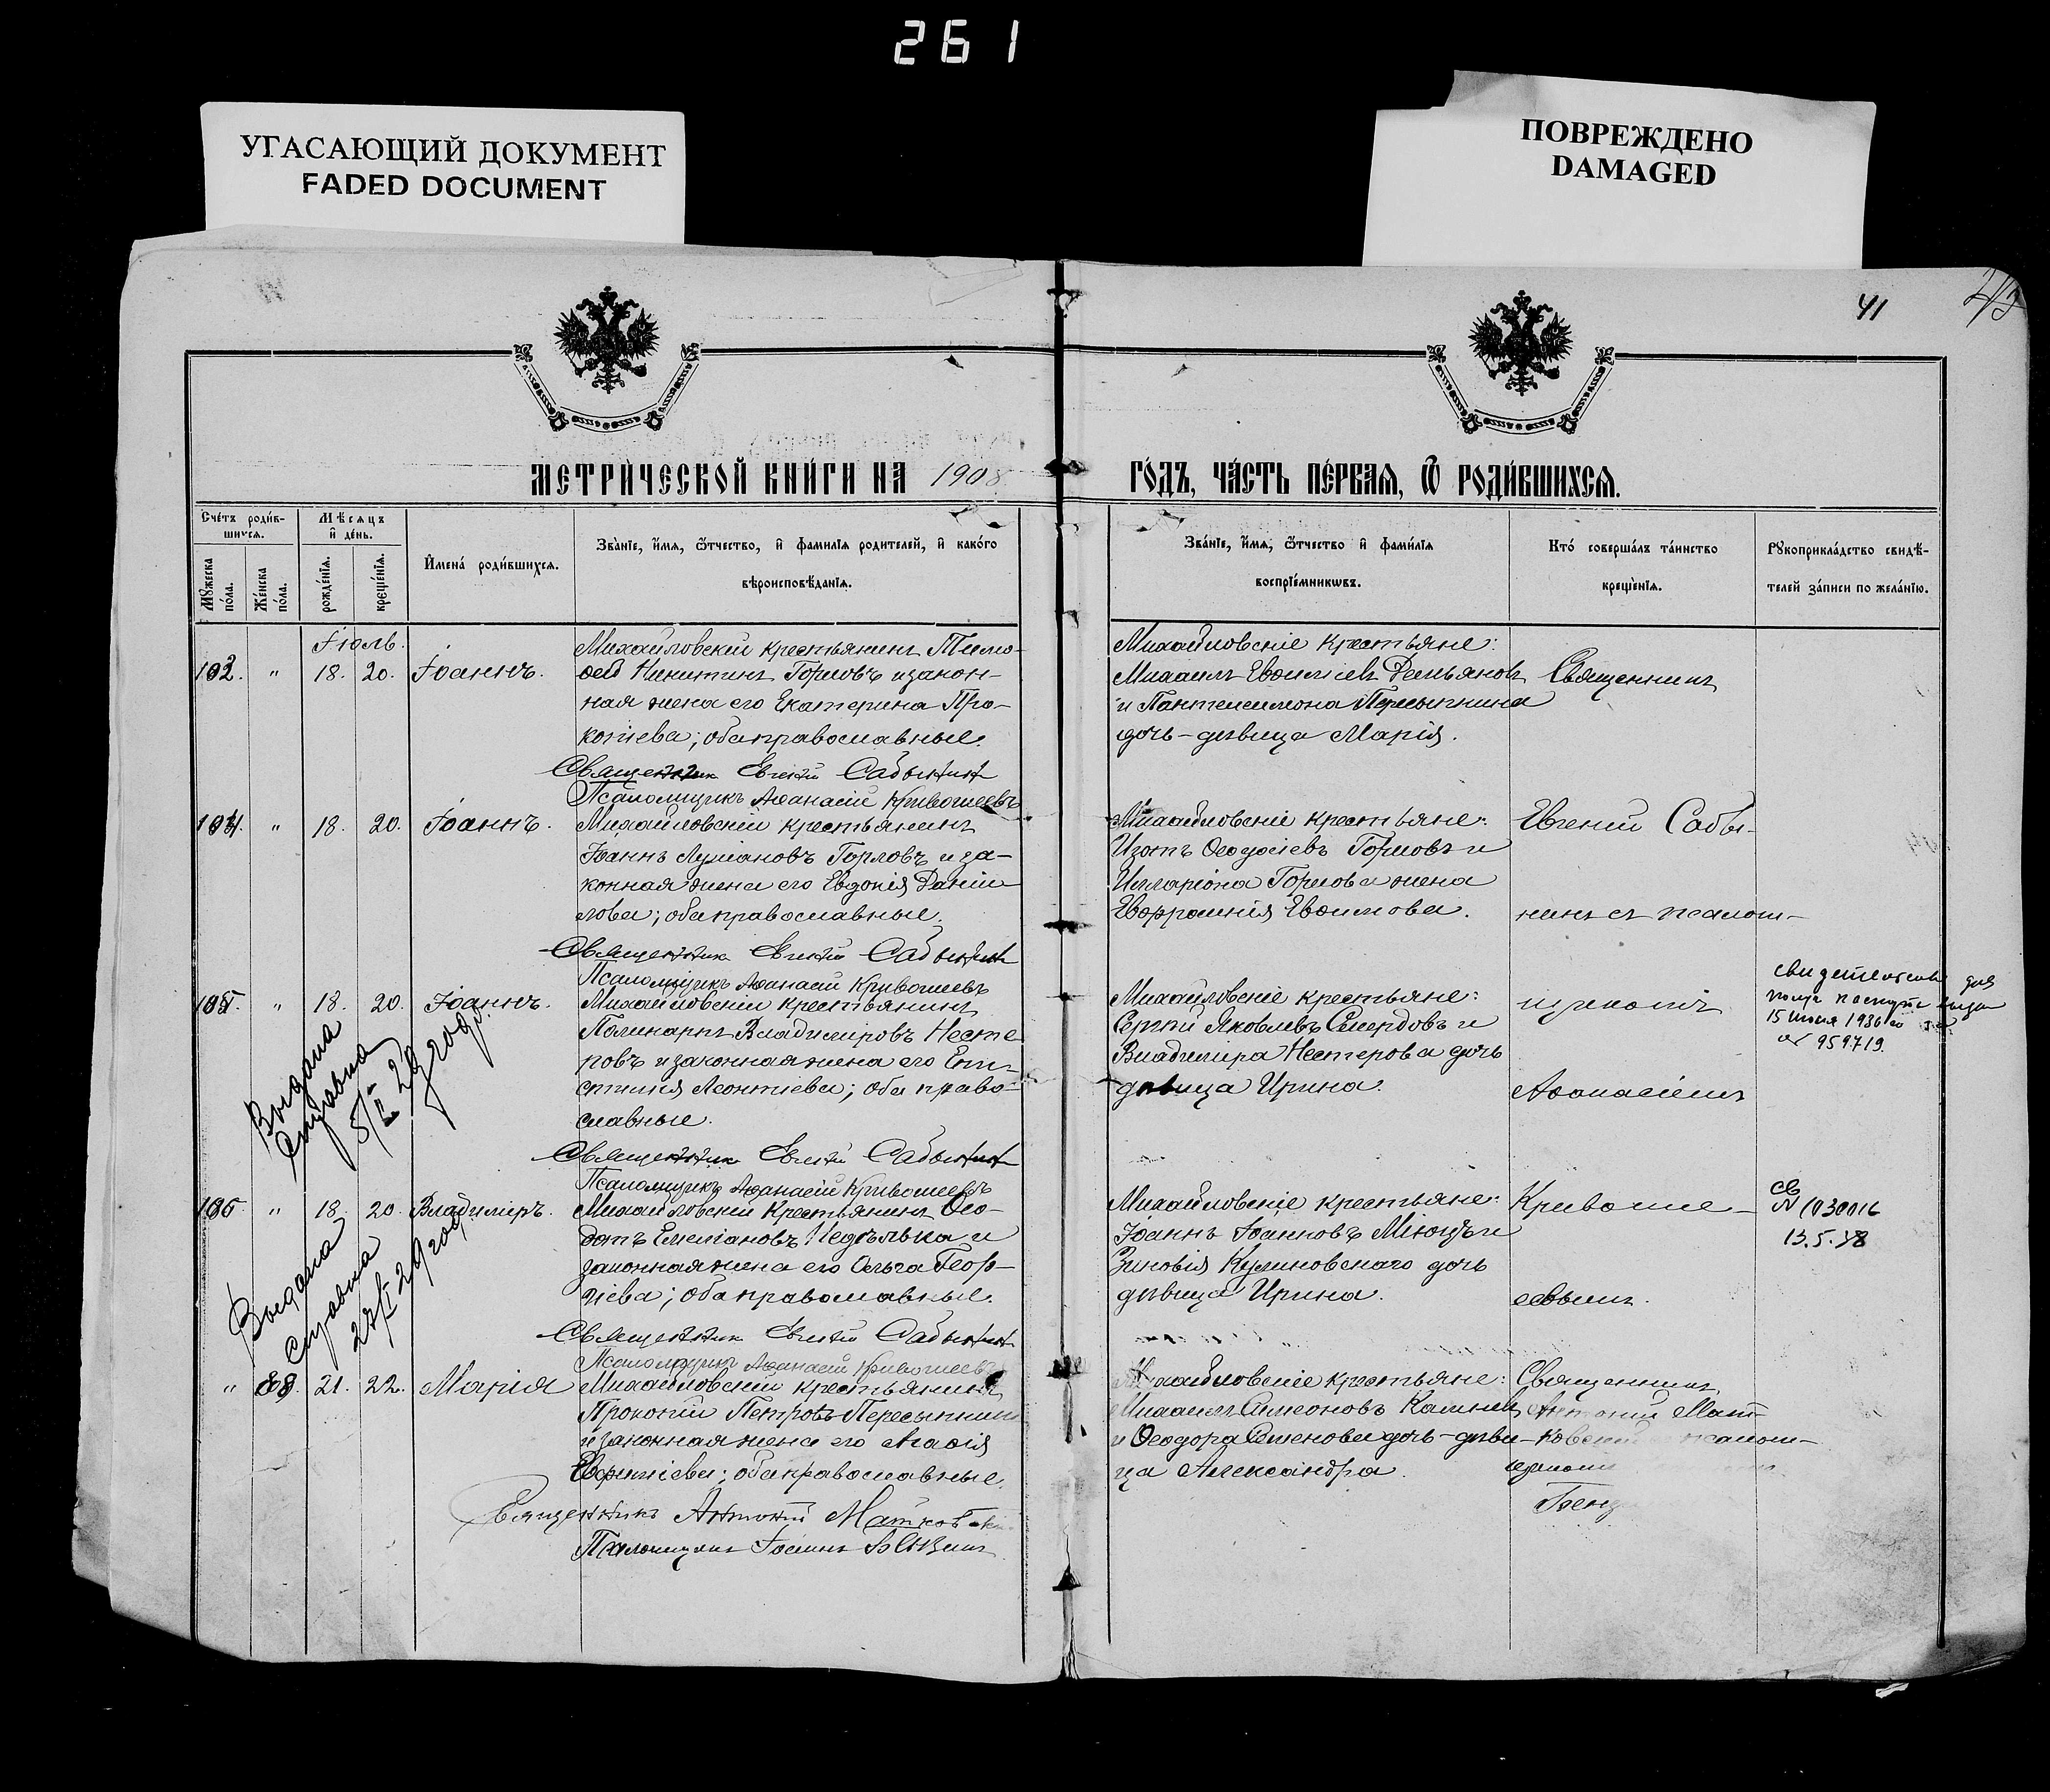 261
УГАСАЮЩИЙ ДОКУМЕНТ
FADED DOCUMENT
ПОВРЕЖДЕНО
DAMAGED
41
МЕТРИЧЕСКОЙ КНИГИ НА 1908
ГОДЪ, ЧАСТЬ ПЕРВАЯ, Ѿ РОДИВШИХСЯ.
Счетъ родив-
шихся.
Мѣсяцъ
и день.
Имена родившихся.
Званіе, имя, ѿтчество, и фамилія родителей, и какого
вѣроисповѣданія.
Мужеска пола.
Женска пола.
рожденія.
крещенія.
Званіе, имя, ѿтчество и фамилія
воспріемниковъ.
Кто совершалъ таинство
крещенія.
Рукоприкладство свидѣ-
телей записи по желанію.
Іюль.
Михайловскій крестьянинъ Тимо-
102. " 18. 20. Іоаннъ. ѳей Никитинъ Горловъ и закон-
ная жена его Екатерина Про-
копіева; оба православные.
Священник Евгений Сабынин
Псаломщикъ Аѳанасій Кривошеевъ
Михайловскіе крестьяне:
Михаилъ Евѳиміевъ Демьяновъ
и Пантелеимона Пересыпкина
дочь-дѣвица Марія.
Священникъ
104. " 18. 20. Іоаннъ. Михайловскій крестьянинъ
Іоаннъ Лукіановъ Горловъ и за-
конная жена его Евдокія Даніи-
лова; оба православные.
Священник Евгений Сабынин
Псаломщикъ Аѳанасій Кривошеевъ
Михайловскіе крестьяне:
Изотъ Ѳеодосіевъ Горловъ и
Илларіона Горлова жена
Евфросинія Евѳимова.
Евгеній Сабы-
нинъ съ псалом-
105. " 18. 20. Іоаннъ. Михайловскій крестьянинъ
Полинарій Владиміровъ Несте-
ровъ и законная жена его Епи-
стимія Леонтіева; оба право-
славные.
Священник Евгений Сабынин
Псаломщикъ Аѳанасій Кривошеевъ
Выдана
справка
5/II 29 года.
Михайловскіе крестьяне:
Сергій Яковлевъ Смердовъ и
Владиміра Нестерова дочь
дѣвица Ирина.
щикомъ
Аѳанасіемъ
15 июня 1936 го
№ 959719.
106 " 18. 20. Владиміръ. Михайловскій крестьянинъ Ѳео-
дотъ Емеліановъ Недѣлька и
законная жена его Ольга Геор-
гіева; оба православные.
Священник Евгений Сабынин
Псаломщикъ Аѳанасій Кривошеевъ
Выдана
справка
29 года
Михайловскіе крестьяне:
Іоаннъ Іоанновъ и
Зиновія Куликовскаго дочь
дѣвица Ирина.
Кривоше-
евымъ.
св
N 1030016
13.5.38
" 88. 21. 22. Марія Михайловскій крестьянинъ
Прокопій Петровъ Пересыпкинъ
и законная жена его Агаѳія
Евфиміева; оба православные.
Священникъ Антоній Матковскій
Псаломщикъ Іоаннъ
Михайловскіе крестьяне:
Михаилъ Симеоновъ Калинъ
и Ѳеодора Семенова дочь-дѣви-
ца Александра.
Священникъ
Антоній Мат-
ковскій псалом-
щикомъ